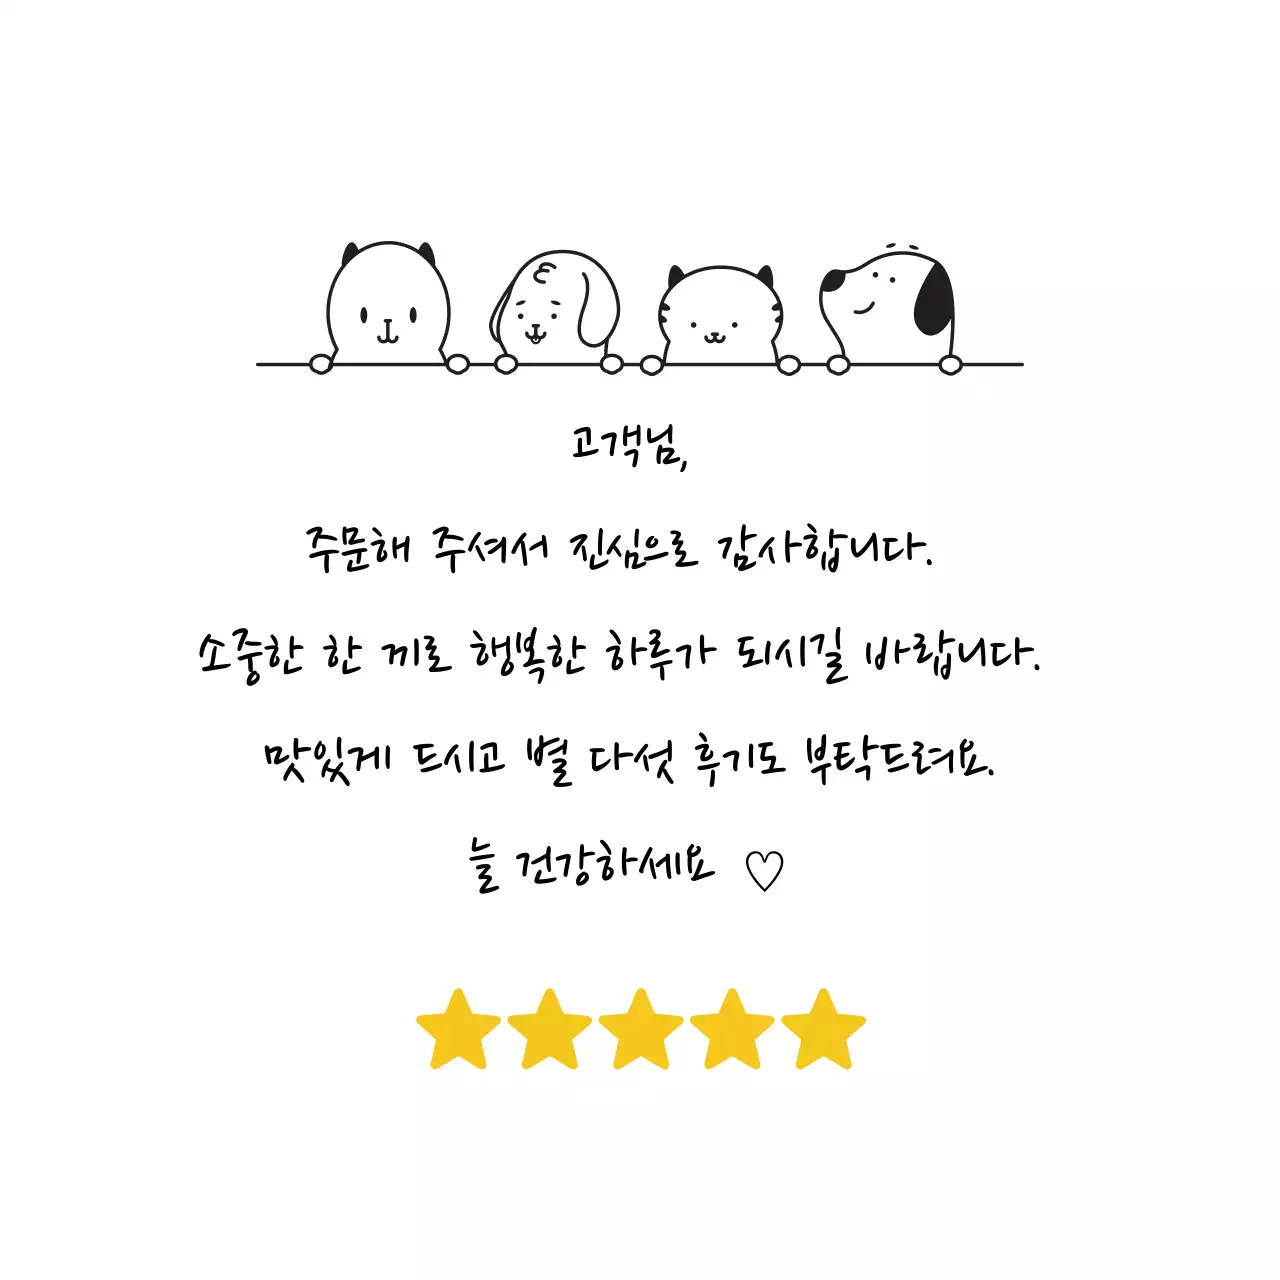 고객님,
주문해 주셔서 진심으로 감사합니다.
소중한 한 끼로 행복한 하루가 되시길 바랍니다.
맛있게 드시고 별 다섯 후기도 부탁드려요.
늘 건강하세요 ♡